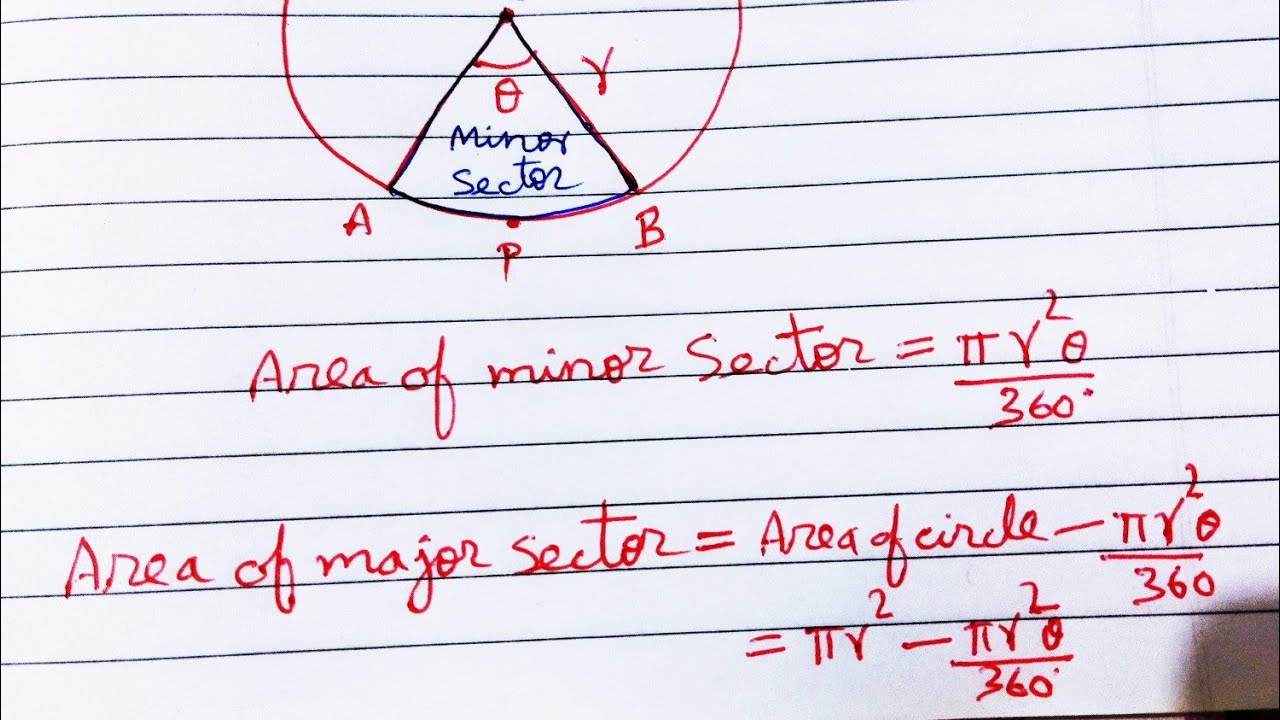 θ r
Minor
Sector
A B
P
Area of minor Sector = πr²θ/360°
Area of major sector = Area of circle − πr²θ/360
= πr² − πr²θ/360°